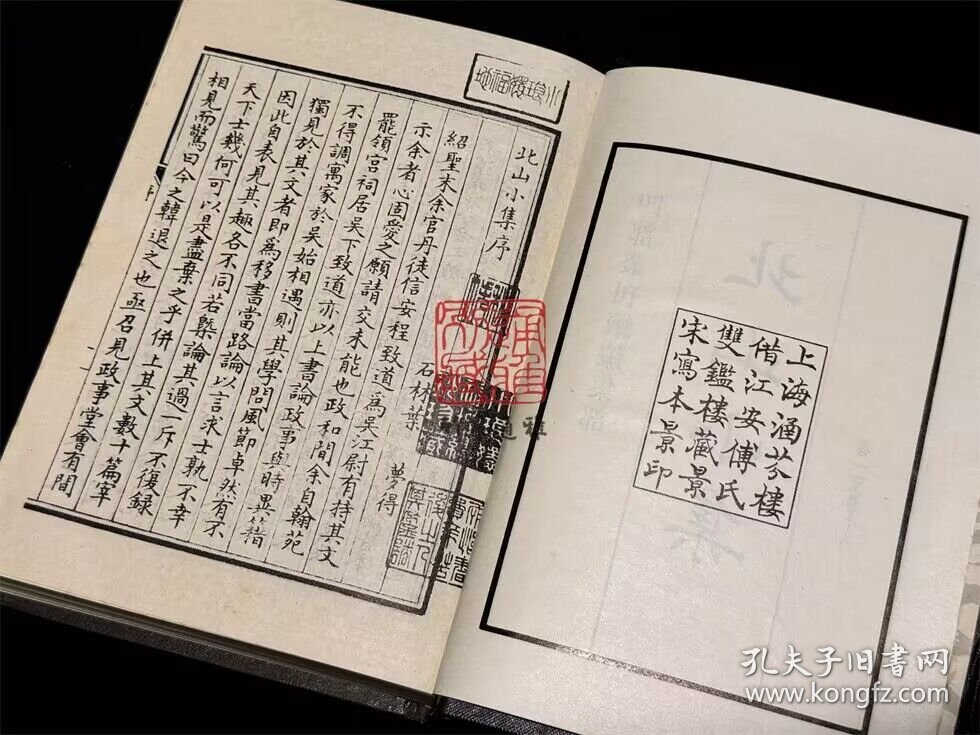 上海涵芬樓
借江安傅氏
雙鑑樓藏景
宋寫本景印
小琅嬛福地
北山小集序
石林葉　夢得
紹聖末余官丹徒信安程致道爲吳江尉有持其文
示余者心固愛之願請交未能也政和間余自翰苑
罷領宮祠居吳下致道亦以上書論政事與時異籍
不得調寓家於吳始相遇則其學問風節卓然有不
獨見於其文者即爲移書當路論以言求士孰不幸
因此自表見其趣各不同若槩論其過一斥不復錄
天下士幾何可以是盡棄之乎併上其文數十篇宰
相見而驚曰今之韓退之也亟召見政事堂會有間
序
一
孔夫子旧书网
www.kongfz.com